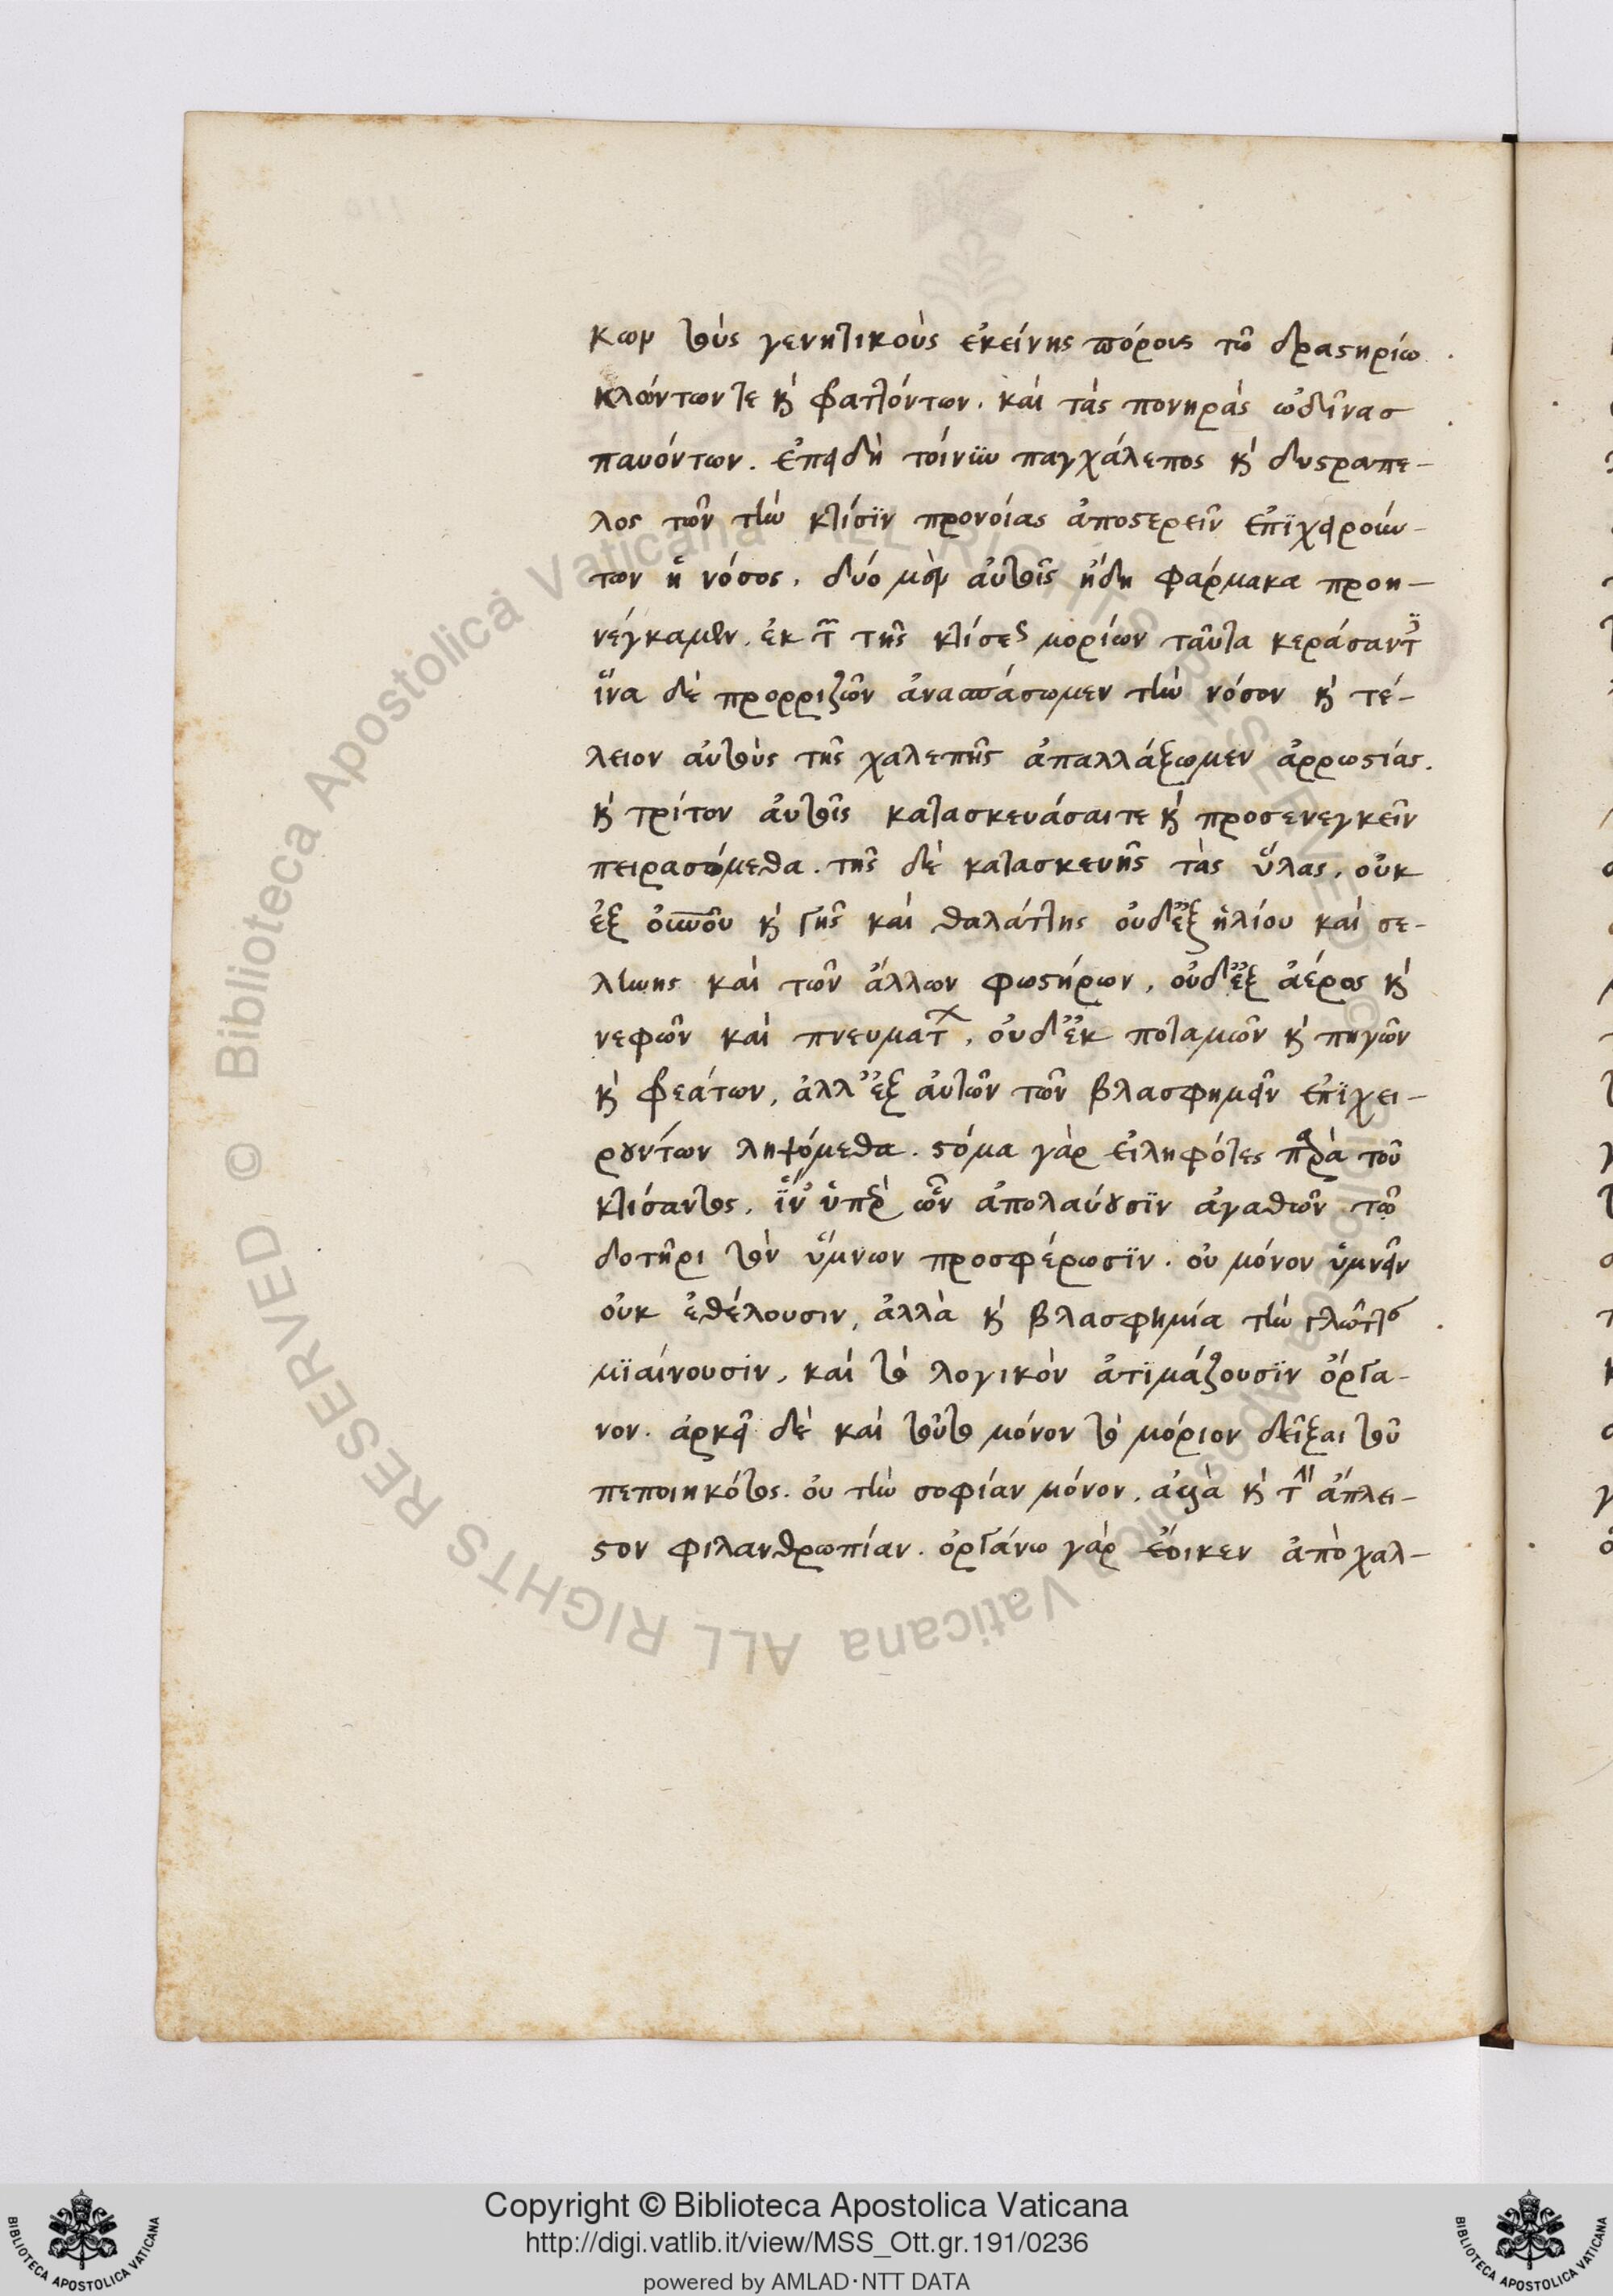 κων τοὺς γεννητικοὺς ἐκείνης πόρους τῶ δραστηρίω
κλώντων τε καὶ φραττόντων. καὶ τὰς πονηρὰς ὠδῖνας
παυόντων. ἐπειδὴ τοίνυν παγχάλεπος καὶ δυστραπε-
λος τῶν τὴν κτίσϊν προνοίας ἀποστερεῖν ἐπϊχειρούν-
των ἡ νόσος, δύο μὲν αὐτοῖς ἤδη φάρμακα προση-
νέγκαμεν. ἐκ τῶν τῆς κτίσεως μορίων ταῦτα κεράσαντες
ἵνα δὲ πρόρριζον ἀνασπάσωμεν τὴν νόσον καὶ τέ-
λειον αὐτοὺς τῆς χαλεπῆς ἀπαλλάξωμεν ἀρρωστίας.
καὶ τρίτον αὐτοῖς κατασκευάσαι τε καὶ προσενεγκεῖν
πειρασόμεθα. τῆς δὲ κατασκευῆς τὰς ὕλας, οὐκ
ἐξ οὐρανοῦ καὶ γῆς καὶ θαλάττης οὐδ' ἐξ ἡλίου καὶ σε-
λήνης καὶ τῶν ἄλλων φωστήρων, οὐδ' ἐξ ἀέρος καὶ
νεφῶν καὶ πνευμάτων, οὐδ' ἐκ ποταμῶν καὶ πηγῶν
καὶ φρεάτων, ἀλλ' ἐξ αὐτῶν τῶν βλασφημεῖν ἐπϊχει-
ρούντων ληψόμεθα. στόμα γὰρ εἰληφότες παρὰ τοῦ
κτίσαντος, ἵν' ὑπὲρ ὧν ἀπολαύουσϊν ἀγαθῶν τῶ
δοτῆρι τὸν ὕμνον προσφέρωσϊν. οὐ μόνον ὑμνεῖν
οὐκ ἐθέλουσιν, ἀλλὰ καὶ βλασφημία τὴν γλῶτταν
μϊαίνουσϊν, καὶ τὸ λογικὸν ἀτϊμάζουσϊν ὄργα-
νον. ἀρκεῖ δὲ καὶ τοῦτο μόνον τὸ μόριον δεῖξαι τοῦ
πεποιηκότος. οὐ τὴν σοφίαν μόνον, ἀλλὰ καὶ τὴν ἄπλει-
στον φιλανθρωπίαν. ὀργάνω γὰρ ἔοικεν ἀπὸ χαλ-
Copyright © Biblioteca Apostolica Vaticana
http://digi.vatlib.it/view/MSS_Ott.gr.191/0236
powered by AMLAD·NTT DATA
© Biblioteca Apostolica Vaticana ALL RIGHTS RESERVED
© Biblioteca Apostolica Vaticana ALL RIGHTS RESERVED
BIBLIOTECA APOSTOLICA VATICANA
BIBLIOTECA APOSTOLICA VATICANA